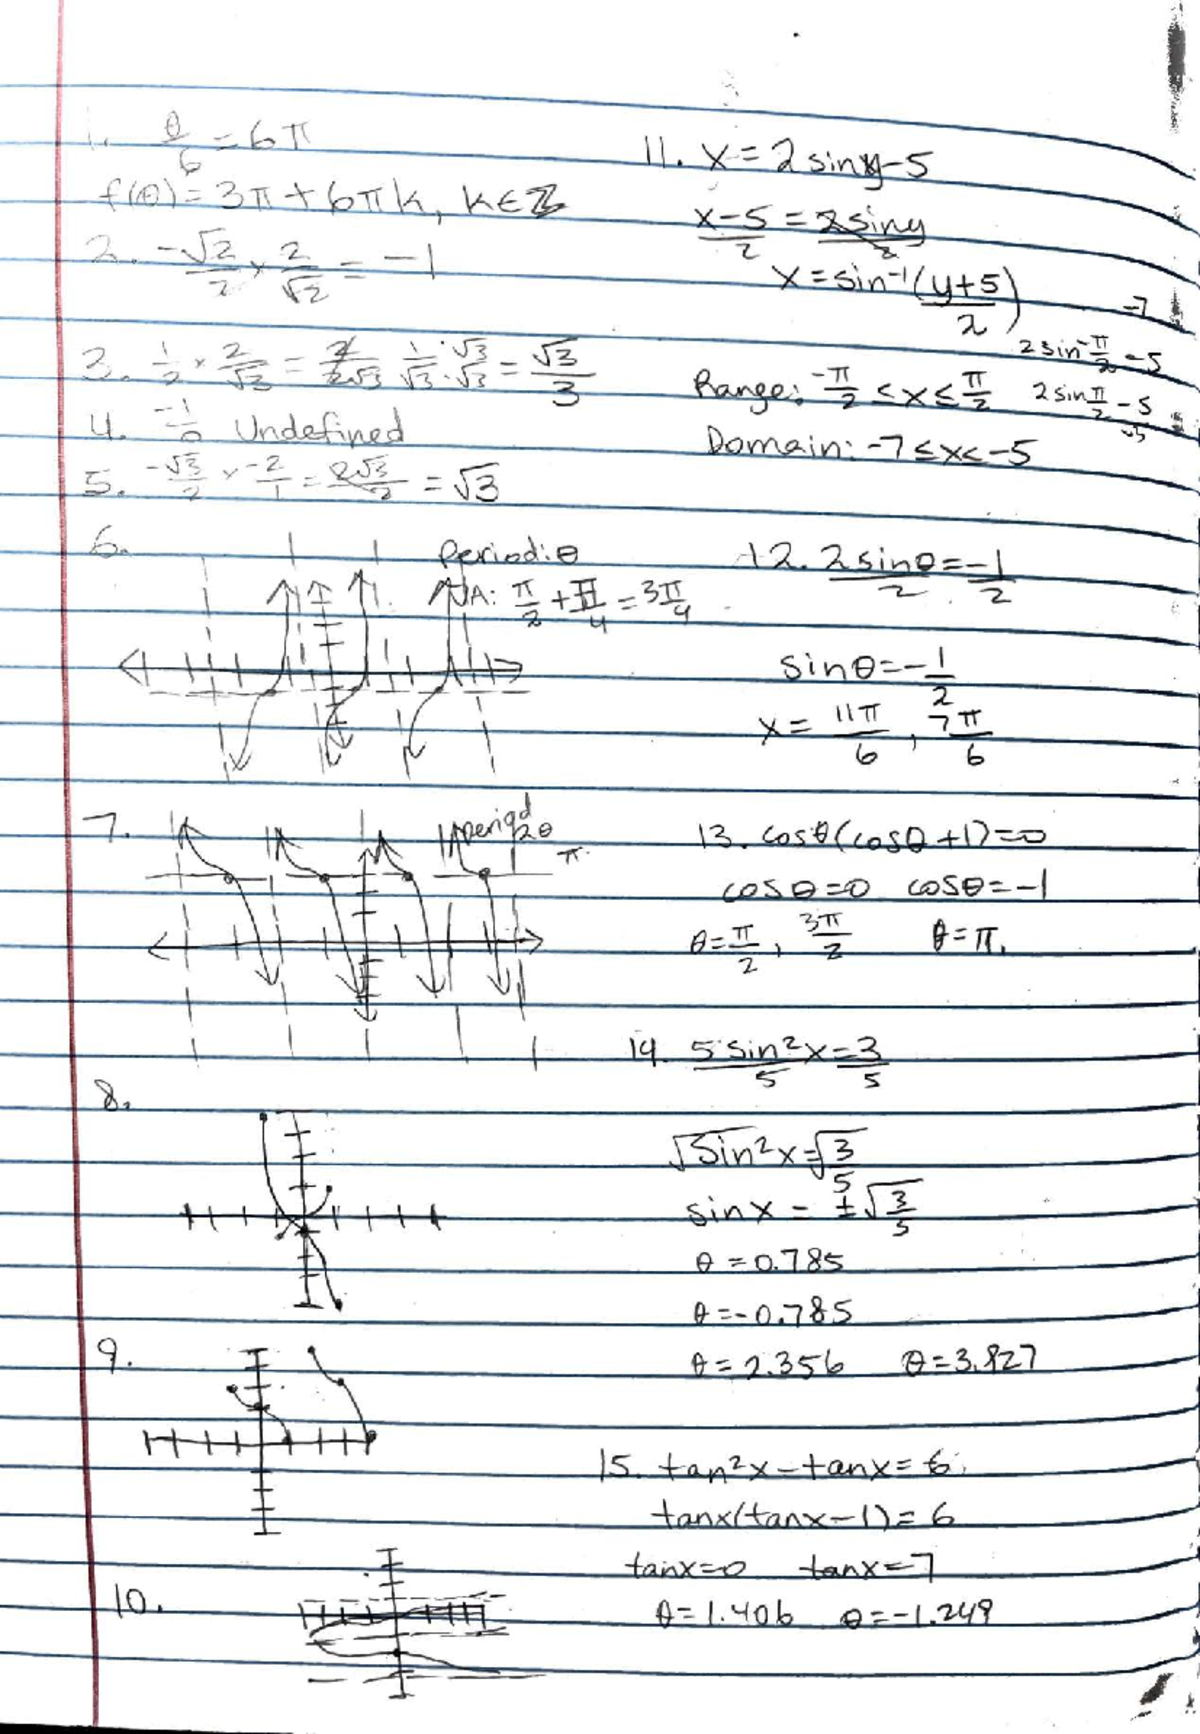 1. θ/6 = 6π
f(θ) = 3π + 6πk, k∈ℤ
2. -√2/2 × 2/√2 = -1
3. 1/2 × 2/√3 = 2/2√3 1/√3 · √3/√3 = √3/3
4. -1/0 Undefined
5. -√3/2 × -2/1 = 2√3/2 = √3
6.
Period: θ
VA: π/2 + π/4 = 3π/4
7.
period 2θ
π
8.
9.
10.
11. x = 2siny - 5
x-5/2 = 2siny/2
x = sin⁻¹(y+5/2)
-7
2sin -π/2 - 5
Range: -π/2 ≤ x ≤ π/2 2sin π/2 - 5
Domain: -7 ≤ x ≤ -5
12. 2sinθ/2 = -1/2
sinθ = -1/2
x = 11π/6, 7π/6
13. cosθ(cosθ + 1) = 0
cosθ = 0 cosθ = -1
θ = π/2, 3π/2 θ = π.
14. 5sin²x/5 = 3/5
√sin²x = √3/5
sinx = ±√3/5
θ = 0.785
θ = -0.785
θ = 2.356 θ = 3.927
15. tan²x - tanx = 6
tanx(tanx - 1) = 6
tanx = 0 tanx = 7
θ = 1.406 θ = -1.249